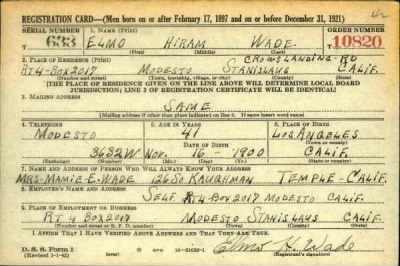 REGISTRATION CARD—(Men born on or after February 17, 1897 and on or before December 31, 1921)
SERIAL NUMBER 1. NAME (Print) ORDER NUMBER
633 ELMO HIRAM WADE 10820
(First) (Middle) (Last)
CROWS LANDING RD
2. PLACE OF RESIDENCE (Print)
RT 4-BOX 2017 MODESTO STANISLAUS CALIF.
(Number and street) (Town, township, village, or city) (County) (State)
[THE PLACE OF RESIDENCE GIVEN ON THE LINE ABOVE WILL DETERMINE LOCAL BOARD
JURISDICTION; LINE 2 OF REGISTRATION CERTIFICATE WILL BE IDENTICAL]
3. MAILING ADDRESS
SAME
[Mailing address if other than place indicated on line 2. If same insert word same]
4. TELEPHONE 5. AGE IN YEARS 6. PLACE OF BIRTH
MODESTO 41 LOS ANGELES
DATE OF BIRTH (Town or county)
3632W NOV. 16 - 1900 CALIF.
(Exchange) (Number) (Mo.) (Day) (Yr.) (State or country)
7. NAME AND ADDRESS OF PERSON WHO WILL ALWAYS KNOW YOUR ADDRESS
MRS-MAMIE-E-WADE 126 SO. KAUGHMAN TEMPLE-CALIF.
8. EMPLOYER'S NAME AND ADDRESS
SELF RT 4 BOX 2017 MODESTO CALIF.
9. PLACE OF EMPLOYMENT OR BUSINESS
RT 4 BOX 2017 MODESTO STANISLAUS CALIF.
(Number and street or R. F. D. number) (Town) (County) (State)
I AFFIRM THAT I HAVE VERIFIED ABOVE ANSWERS AND THAT THEY ARE TRUE.
D. S. S. Form 1
(Revised 1-1-42) (over) Elmo H. Wade